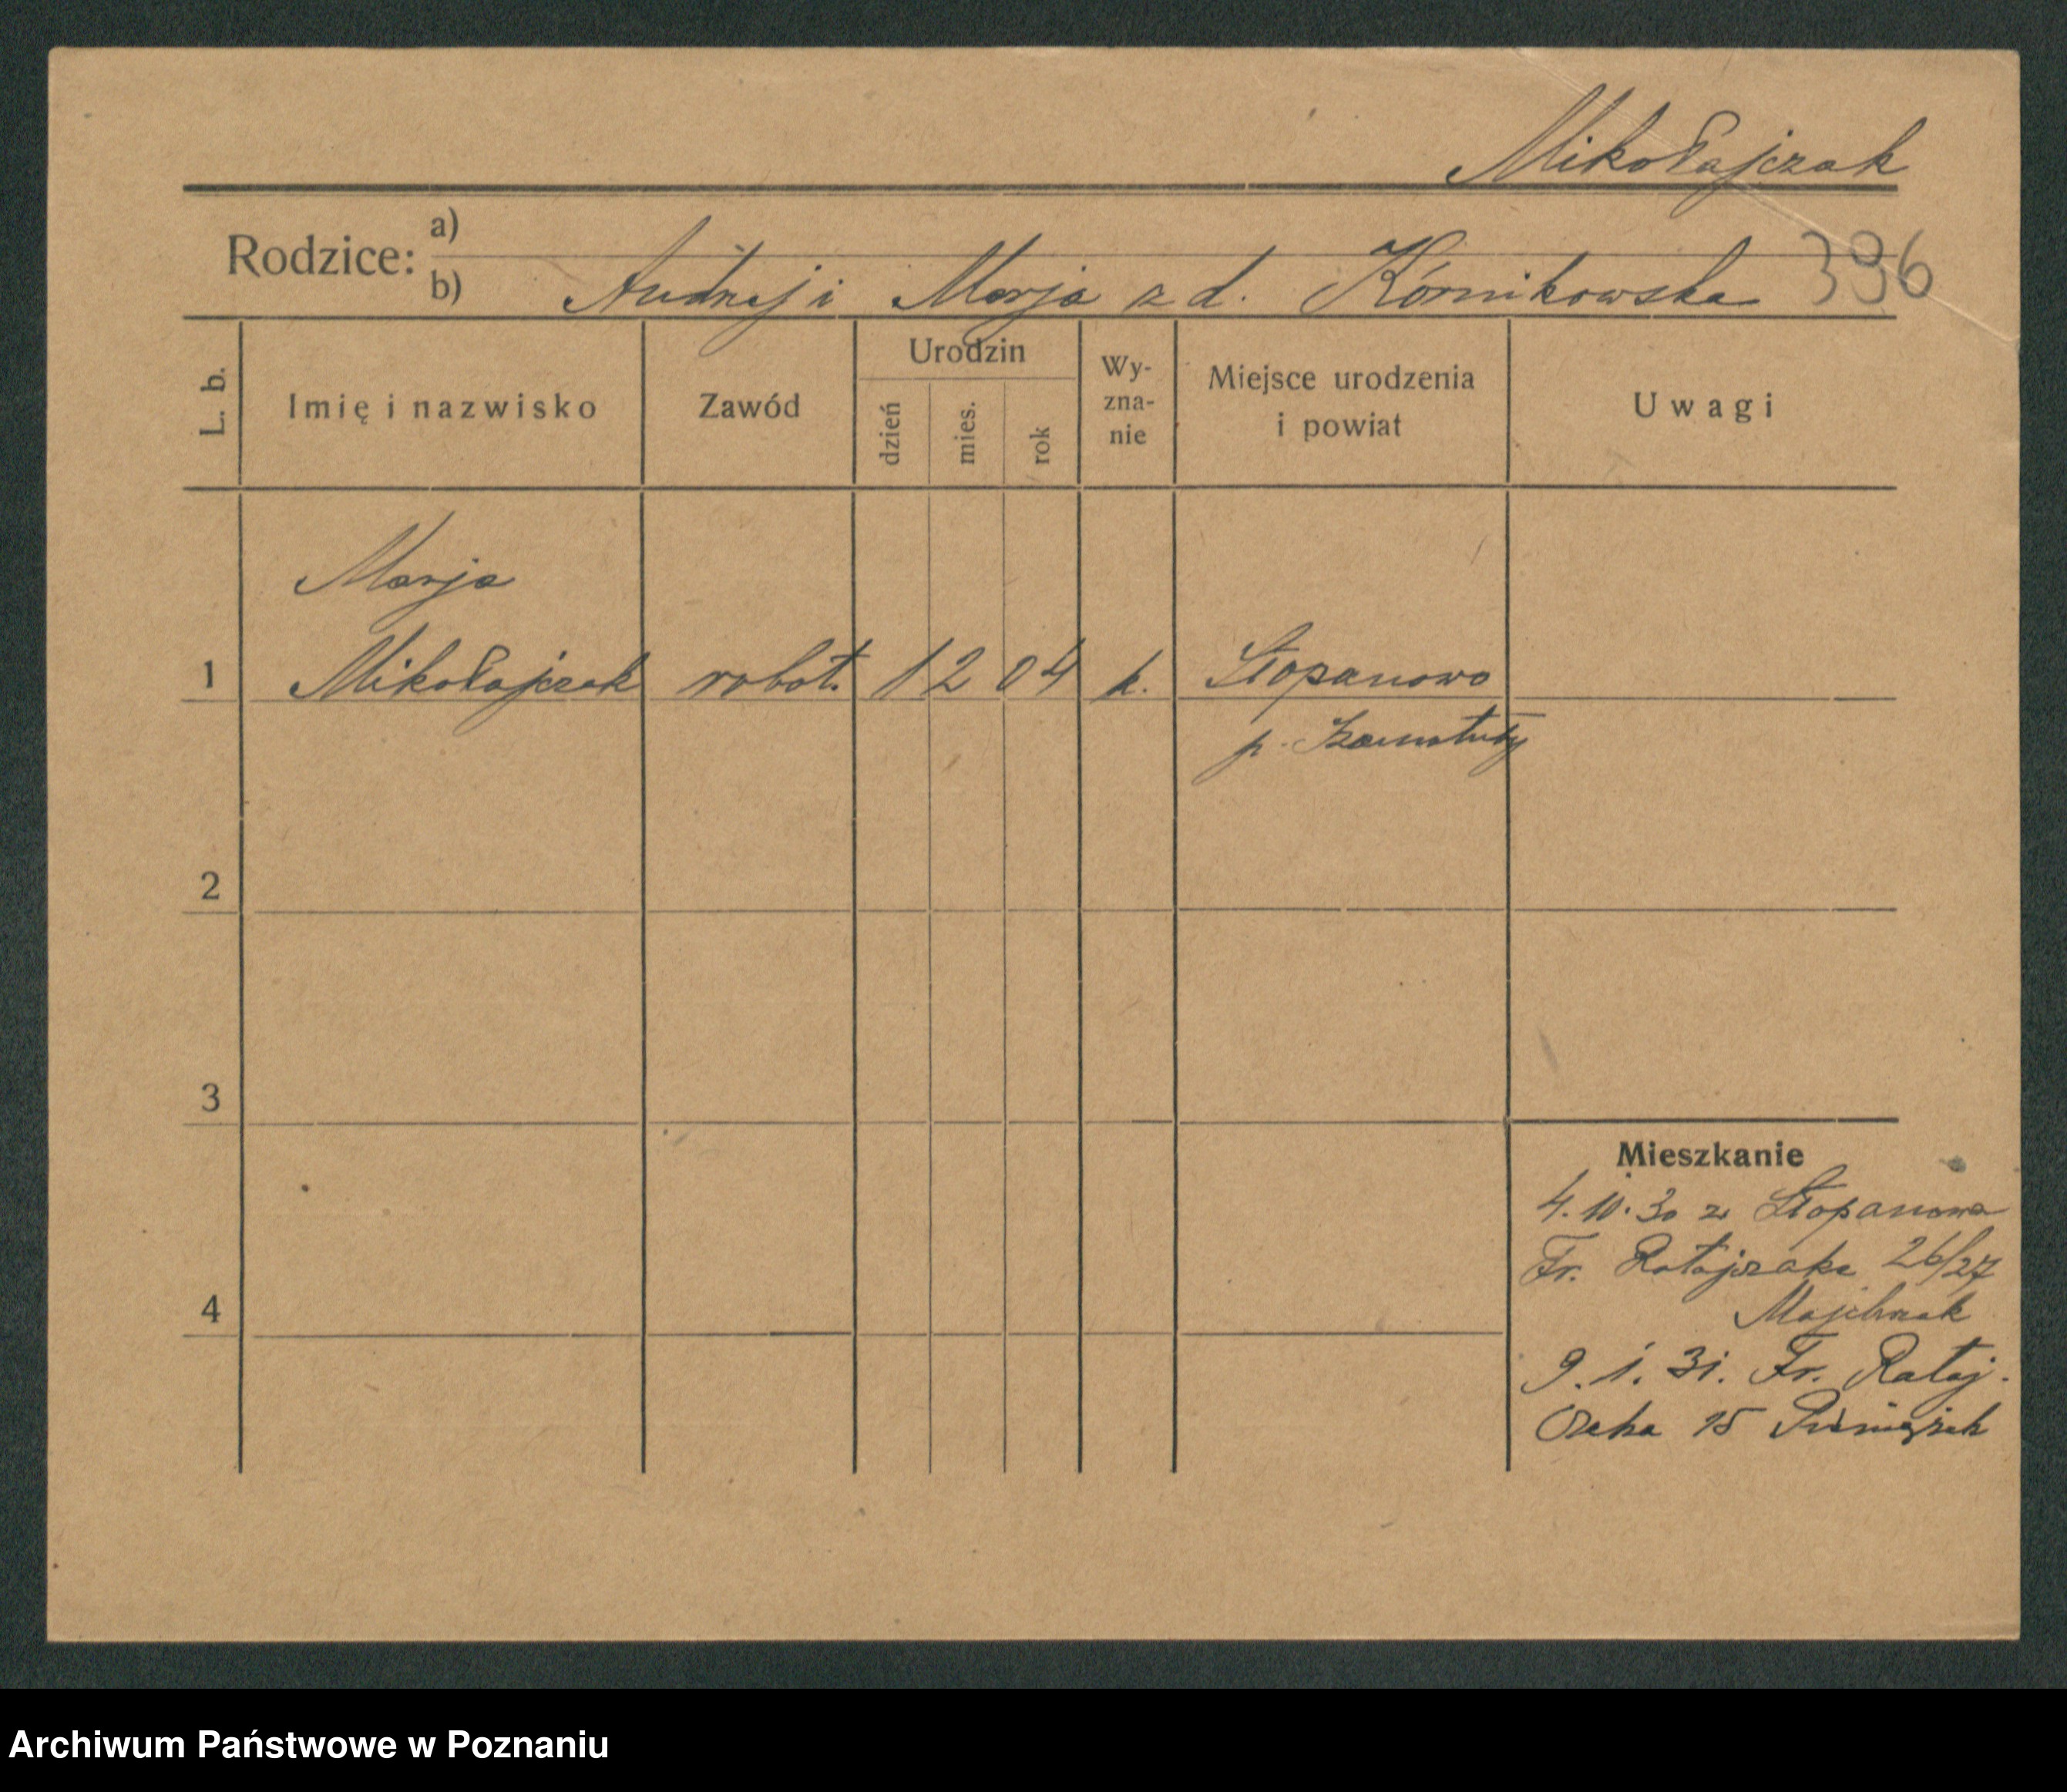 Mikołajczak
Rodzice: a)
b) Andrzej i Marja z d. Kórnikowska 396
L. b.
Imię i nazwisko
Zawód
Urodzin
dzień
mies.
rok
Wy-
zna-
nie
Miejsce urodzenia
i powiat
Uwagi
Marja
1 Mikołajczak robot. 1 2 04 k. Stopanowo
p. Szamotuły
2
3
4
Mieszkanie
4.10.30 z Stopanowa
Fr. Ratajczaka 26/27
Majchrzak
9.1.31. Fr. Rataj-
czaka 15
Archiwum Państwowe w Poznaniu